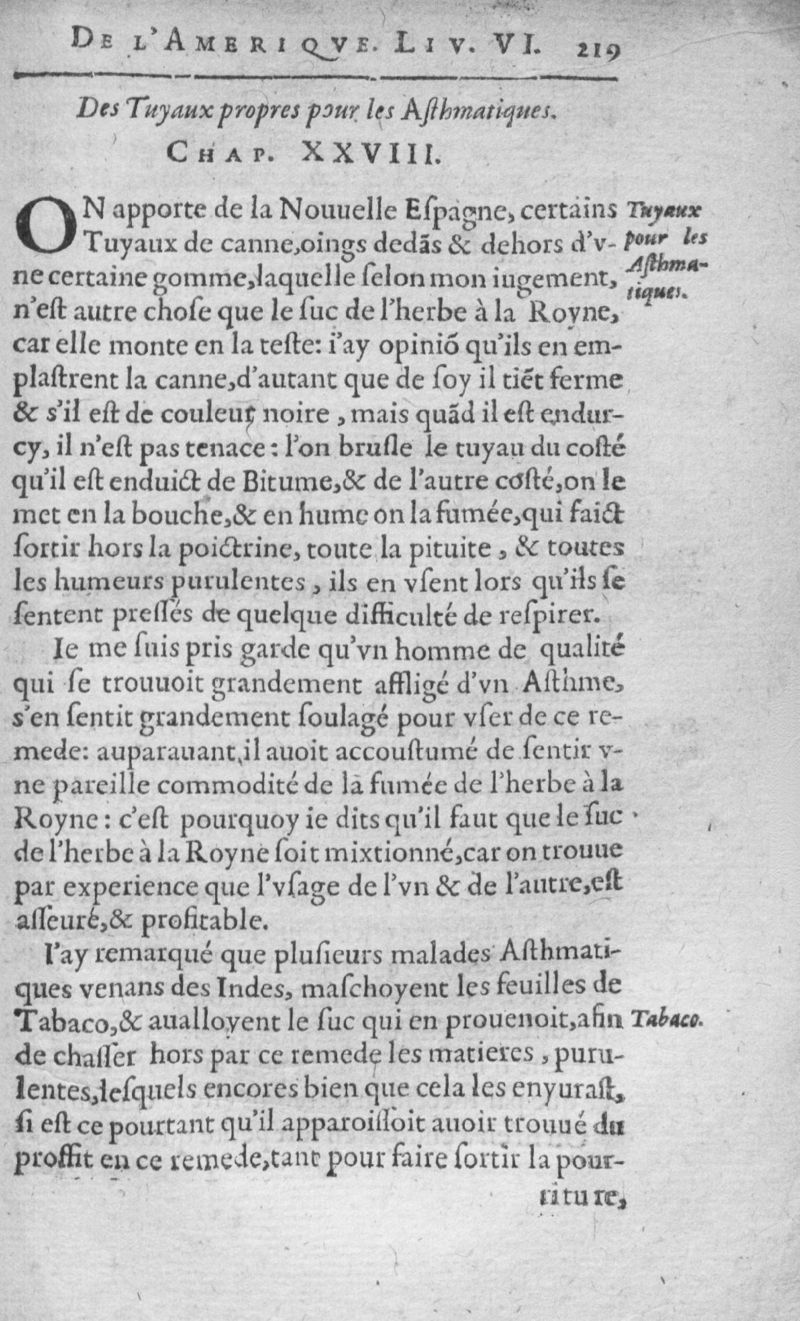 DE L'AMERIQVE. LIV. VI. 219
Des Tuyaux propres pour les Aſthmatiques.
CHAP. XXVIII.
ON apporte de la Nouuelle Eſpagne, certains
Tuyaux de canne,oings dedãs & dehors d'v-
ne certaine gomme,laquelle ſelon mon iugement,
n'eſt autre choſe que le ſuc de l'herbe à la Royne,
car elle monte en la teſte: i'ay opiniõ qu'ils en em-
plaſtrent la canne,d'autant que de ſoy il tiẽt ferme
& s'il eſt de couleur noire , mais quãd il eſt endur-
cy, il n'eſt pas tenace : l'on bruſle le tuyau du coſté
qu'il eſt enduict de Bitume,& de l'autre coſté,on le
met en la bouche,& en hume on la fumée,qui faict
ſortir hors la poictrine, toute la pituite , & toutes
les humeurs purulentes , ils en vſent lors qu'ils ſe
ſentent preſſés de quelque difficulté de reſpirer.
Ie me ſuis pris garde qu'vn homme de qualité
qui ſe trouuoit grandement affligé d'vn Aſthme,
s'en ſentit grandement ſoulagé pour vſer de ce re-
mede: auparauant,il auoit accouſtumé de ſentir v-
ne pareille commodité de la fumée de l'herbe à la
Royne : c'eſt pourquoy ie dits qu'il faut que le ſuc
de l'herbe à la Royne ſoit mixtionné,car on trouue
par experience que l'vſage de l'vn & de l'autre,eſt
aſſeuré,& profitable.
I'ay remarqué que pluſieurs malades Aſthmati-
ques venans des Indes, maſchoyent les feuilles de
Tabaco,& aualloyent le ſuc qui en prouenoit,afin
de chaſſer hors par ce remede les matieres , puru-
lentes,leſquels encores bien que cela les enyuraſt,
ſi eſt ce pourtant qu'il apparoiſſoit auoir trouué du
proffit en ce remede,tant pour faire ſortir la pour-
riture,
Tuyaux
pour les
Aſthma-
tiques.
Tabaco.